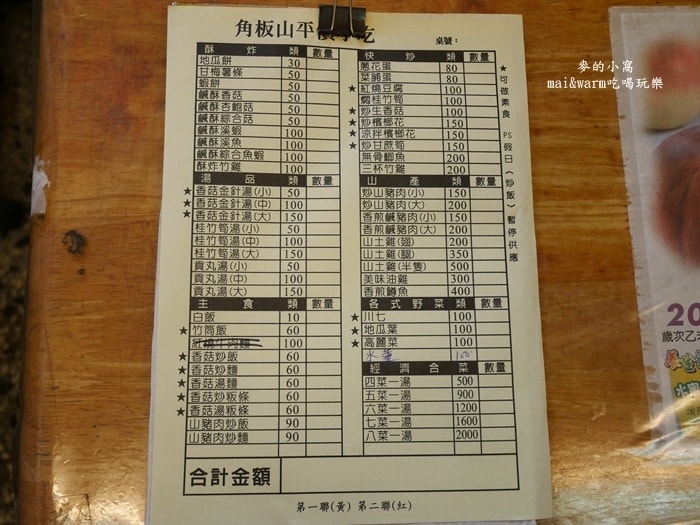 角板山平價小吃
桌號：
酥炸類 數量
地瓜餅 30
甘梅薯條 50
蝦餅 50
鹹酥香菇 50
鹹酥杏鮑菇 50
鹹酥綜合菇 50
鹹酥溪蝦 100
鹹酥溪魚 100
鹹酥綜合魚蝦 100
酥炸竹雞 100
湯品類 數量
★ 香菇金針湯(小) 50
★ 香菇金針湯(中) 100
★ 香菇金針湯(大) 150
桂竹筍湯(小) 50
桂竹筍湯(中) 100
桂竹筍湯(大) 150
貢丸湯(小) 50
貢丸湯(中) 100
貢丸湯(大) 150
主食類 數量
白飯 10
★ 竹筒飯 60
紅燒牛肉麵 100
★ 香菇炒飯 60
★ 香菇炒麵 60
★ 香菇湯麵 60
★ 香菇炒粄條 60
★ 香菇湯粄條 60
山豬肉炒飯 90
山豬肉炒麵 90
快炒類 數量
蔥花蛋 80
菜脯蛋 80
★ 紅燒豆腐 100
燜桂竹筍 100
★ 炒生香菇 100
★ 炒檳榔花 150
★ 涼拌檳榔花 150
★ 炒甘蔗筍 150
無骨鯽魚 200
三杯竹雞 200
山產類 數量
炒山豬肉(小) 150
炒山豬肉(大) 200
香煎鹹豬肉(小) 150
香煎鹹豬肉(大) 200
山土雞(翅) 200
山土雞(腿) 350
山土雞(半隻) 500
美味油雞 300
香煎鱒魚 400
各式野菜類 數量
★ 川七 100
★ 地瓜葉 100
★ 高麗菜 100
水蓮 100
經濟合菜 數量
四菜一湯 500
五菜一湯 900
六菜一湯 1200
七菜一湯 1600
八菜一湯 2000
★可做素食 PS假日《炒飯》暫停供應
合計金額
第一聯(黃) 第二聯(紅)
麥的小窩
mai&warm吃喝玩樂
20
歲次乙未